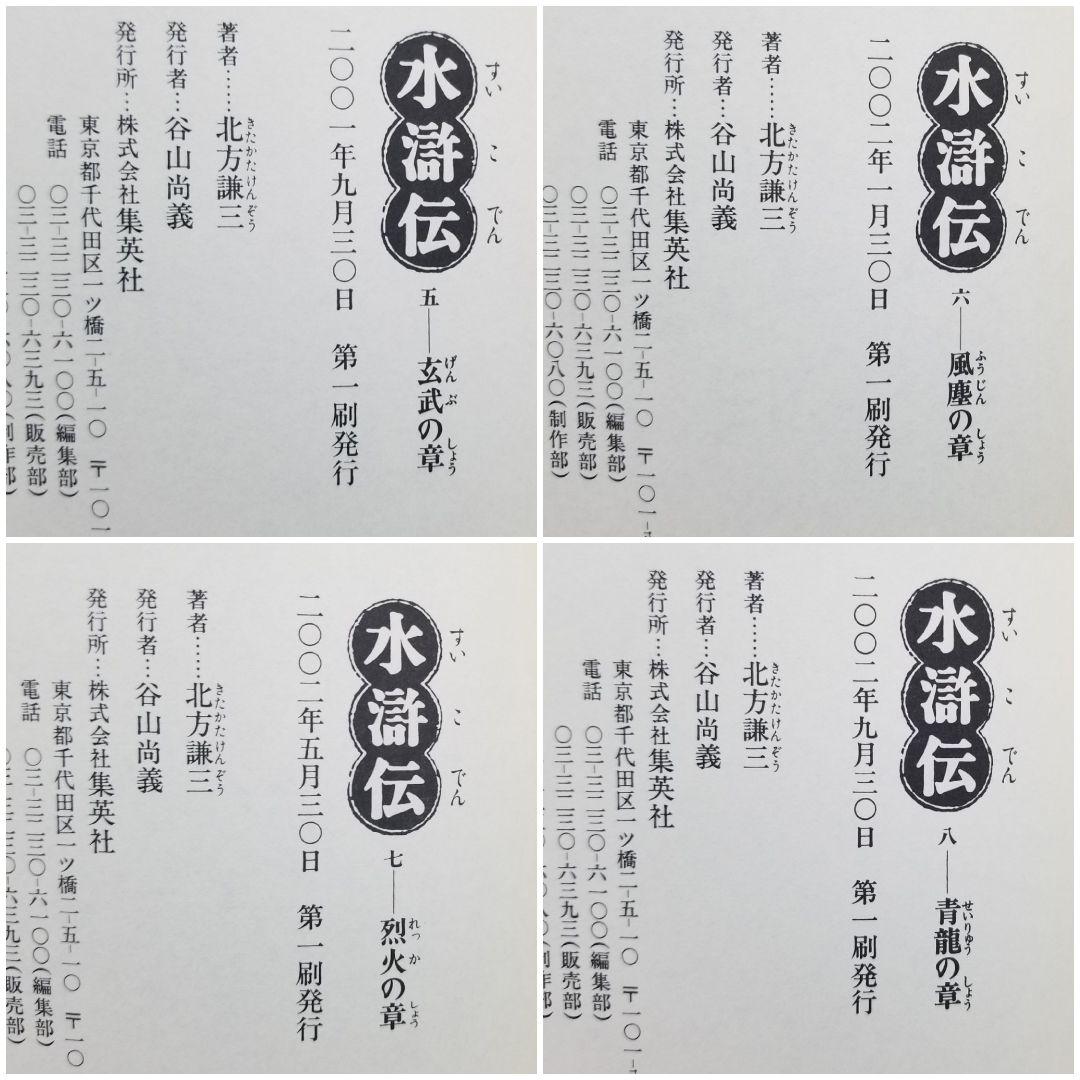 水滸伝
すいこでん
五――玄武の章
げんぶ しょう
二〇〇一年九月三〇日 第一刷発行
著者……北方謙三
きたかたけんぞう
発行者…谷山尚義
発行所…株式会社集英社
東京都千代田区一ツ橋二-五-一〇 〒一〇一
電話 〇三-三二三〇-六一〇〇(編集部)
〇三-三二三〇-六三九三(販売部)
水滸伝
すいこでん
六――風塵の章
ふうじん しょう
二〇〇二年一月三〇日 第一刷発行
著者……北方謙三
きたかたけんぞう
発行者…谷山尚義
発行所…株式会社集英社
東京都千代田区一ツ橋二-五-一〇 〒一〇一-
電話 〇三-三二三〇-六一〇〇(編集部)
〇三-三二三〇-六三九三(販売部)
〇三-三二三〇-六〇八〇(制作部)
水滸伝
すいこでん
七――烈火の章
れっか しょう
二〇〇二年五月三〇日 第一刷発行
著者……北方謙三
きたかたけんぞう
発行者…谷山尚義
発行所…株式会社集英社
東京都千代田区一ツ橋二-五-一〇 〒一〇
電話 〇三-三二三〇-六一〇〇(編集部)
〇三-三二三〇-六三九三(販売部)
水滸伝
すいこでん
八――青龍の章
せいりゅう しょう
二〇〇二年九月三〇日 第一刷発行
著者……北方謙三
きたかたけんぞう
発行者…谷山尚義
発行所…株式会社集英社
東京都千代田区一ツ橋二-五-一〇 〒一〇一-
電話 〇三-三二三〇-六一〇〇(編集部)
〇三-三二三〇-六三九三(販売部)